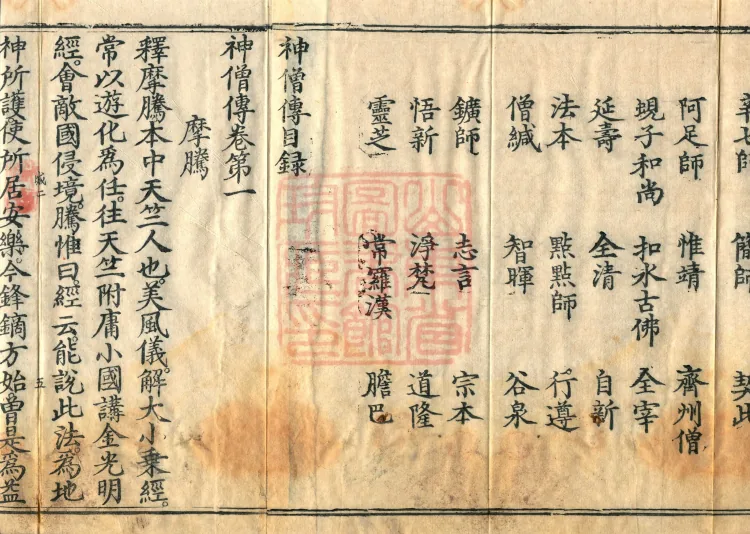 辛七師 簡師 契此
阿足師 惟靖 齊州僧
蜆子和尚 扣氷古佛 全宰
延壽 全清 自新
法本 點點師 行遵
僧緘 智暉 谷泉
鑛師 志言 宗本
悟新 淨梵 道隆
靈芝 常羅漢 膽巴
神僧傳目録
神僧傳卷第一
摩騰
釋摩騰本中天竺人也。美風儀。解大小乗經。
常以遊化為任。往天竺附庸小國講金光明
經。會敵國侵境。騰惟曰。經云。能說此法。為地
五
神所護。使所居安樂。今鋒鏑方始。曽是為益